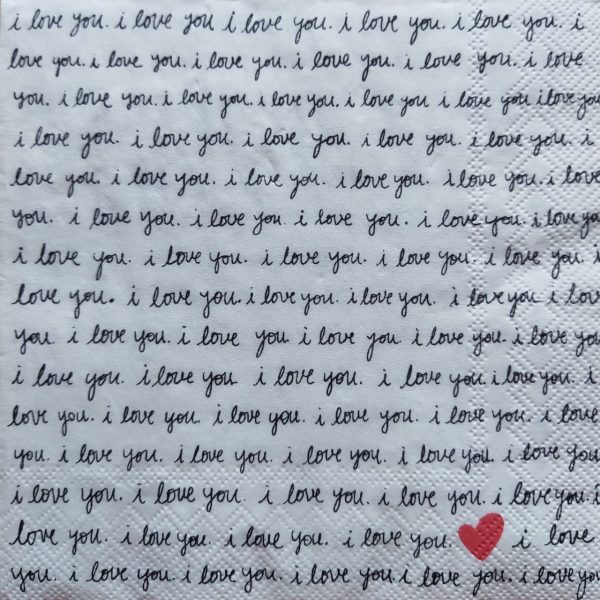 i love you. i love you i love you. i love you. i love you. i
love you. i love you. i love you. i love you. i love you. i love
you. i love you. i love you. i love you. i love you i love you i love you
i love you. i love you. i love you. i love you. i love you. i
love you. i love you. i love you. i love you. i love you. i love
you. i love you. i love you i love you. i love you. i love you
i love you. i love you. i love you. i love you. i love you. i
love you. i love you. i love you. i love you. i love you i love
you. i love you. i love you i love you i love you. i love you
i love you. i love you i love you. i love you. i love you. i
love you. i love you. i love you. i love you. i love you. i love
you. i love you. i love you. i love you. i love you. i love you
i love you. i love you. i love you. i love you. i love you. i
love you. i love you. i love you. i love you. i love
you. i love you. i love you. i love you. i love you. i love you